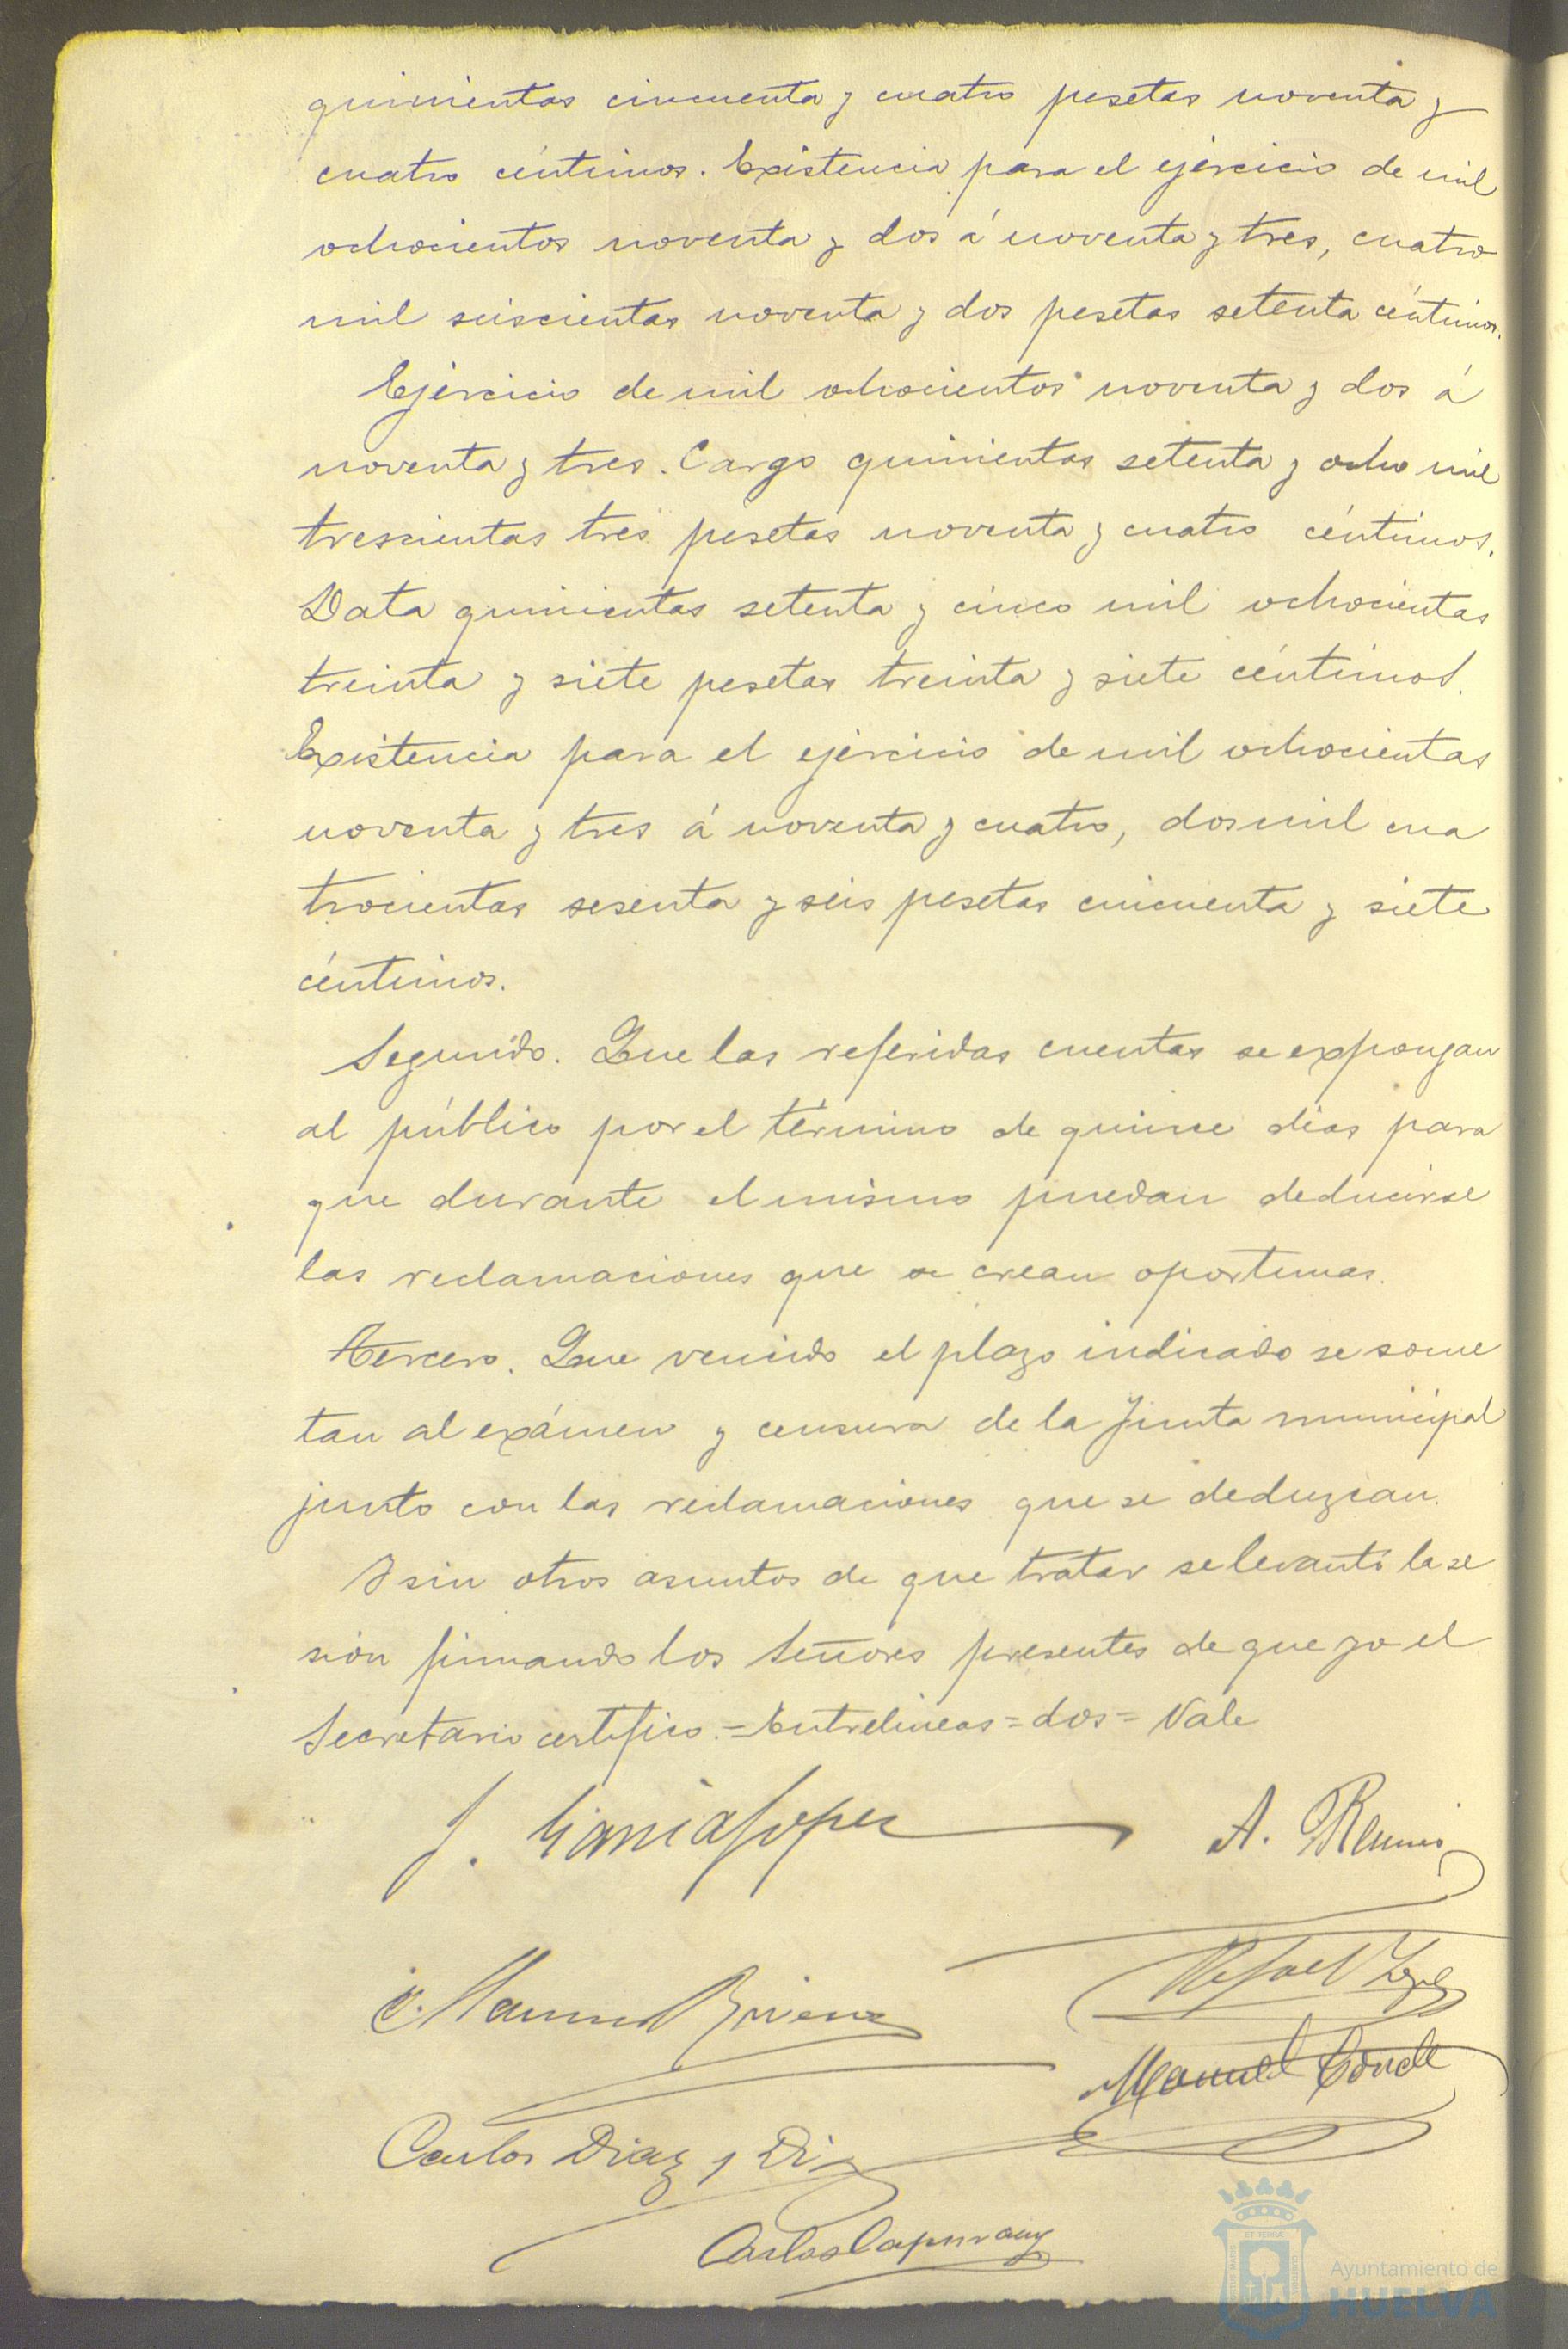 quinientas cincuenta y cuatro pesetas noventa y
cuatro céntimos. Existencia para el ejercicio de mil
ochocientos noventa y dos á noventa y tres, cuatro
mil seiscientas noventa y dos pesetas setenta céntimos.
Ejercicio de mil ochocientos noventa y dos á
noventa y tres. Cargo quinientas setenta y ocho mil
trescientas tres pesetas noventa y cuatro céntimos.
Data quinientas setenta y cinco mil ochocientas
treinta y siete pesetas treinta y siete céntimos.
Existencia para el ejercicio de mil ochocientas
noventa y tres á noventa y cuatro, dos mil cua
trocientas sesenta y seis pesetas cincuenta y siete
céntimos.
Segundo. Que las referidas cuentas se expongan
al público por el término de quince dias para
que durante el mismo puedan deducirse
las reclamaciones que se crean oportunas.
Tercero. Que vencido el plazo indicado se some
tan al exámen y censura de la Junta municipal
junto con las reclamaciones que se deduzcan.
Y sin otros asuntos de que tratar se levantó la se
sión firmando los Señores presentes de que yo el
Secretario certifico.=Entrelineas=dos=Vale
J. García López
A.
Rafael
Manuel
Manuel Conde
Carlos Diaz y
Carlos
Ayuntamiento de
HUELVA